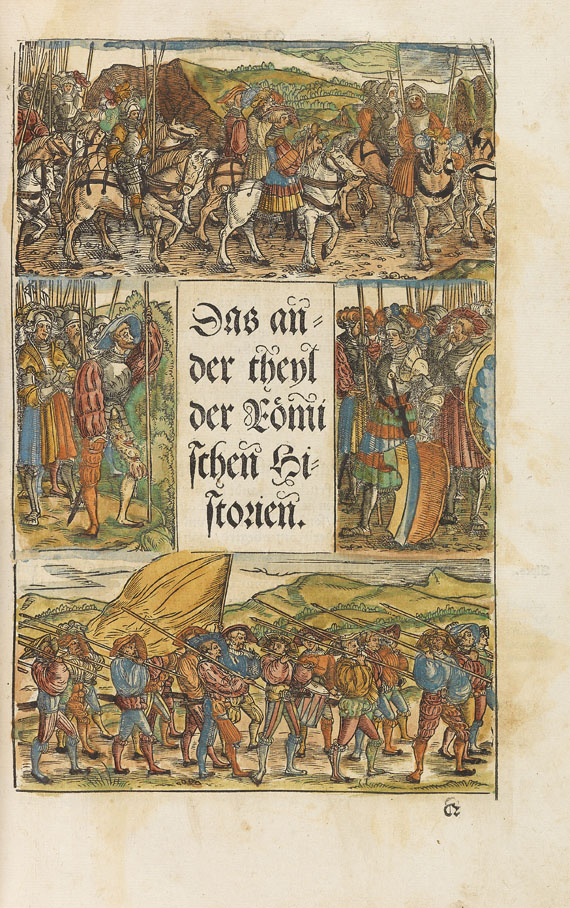 Das an⸗
der theyl
der Römi
ſchen Hi⸗
ſtorien.